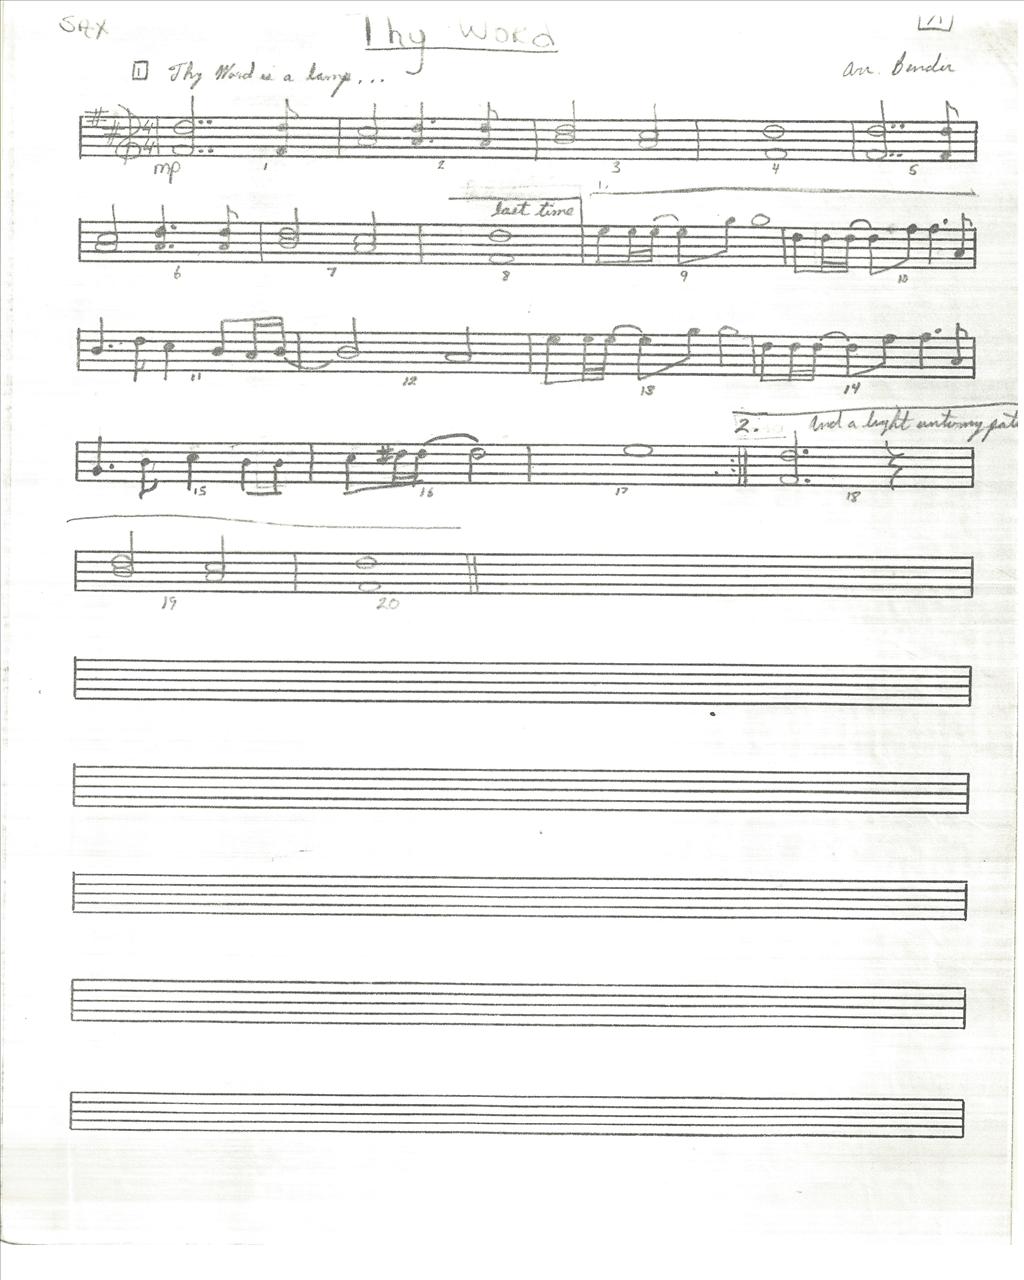 SAX
Thy Word
1 Thy Word is a lamp...
Arr. Bender
4 4
mp 1 2 3 4 5
last time 1.
6 7 8 9 10
11 12 13 14
2. And a light unto my path
15 16 17 18
19 20